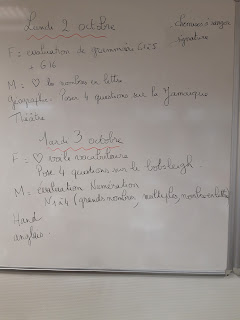 Lundi 2 octobre
chemises à ranger
signature
F : évaluation de grammaire G1à5
+ G16
M : ♡ les nombres en lettre
géographie : Poser 4 questions sur la Jamaïque
Théâtre
Mardi 3 octobre
F : ♡ vocabulaire
Poser 4 questions sur le bobsleigh.
M : évaluation Numération
N1à4 (grands nombres, multiples, nombres en lettres)
Hand
anglais